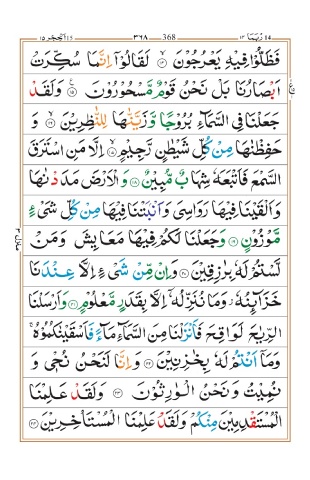 ربما ١٤ ٣٦٨ 368 الحجر ١٥
فَظَلُّوْا فِيْهِ يَعْرُجُوْنَ ۙ‏﴿۱۴﴾ لَقَالُوْۤا اِنَّمَا سُكِّرَتْ
اَبْصَارُنَا بَلْ نَحْنُ قَوْمٌ مَّسْحُوْرُوْنَ ﴿۱۵﴾ وَلَقَدْ
جَعَلْنَا فِى السَّمَآءِ بُرُوْجًا وَّزَيَّنّٰهَا لِلنّٰظِرِيْنَ ﴿۱۶﴾ وَ
حَفِظْنٰهَا مِنْ كُلِّ شَيْطٰنٍ رَّجِيْمٍ ﴿۱۷﴾ اِلَّا مَنِ اسْتَرَقَ
السَّمْعَ فَاَتْبَعَهٗ شِهَابٌ مُّبِيْنٌ ﴿۱۸﴾ وَالْاَرْضَ مَدَدْنٰهَا
وَاَلْقَيْنَا فِيْهَا رَوَاسِىَ وَاَنْۢبَتْنَا فِيْهَا مِنْ كُلِّ شَىْءٍ
مَّوْزُوْنٍ ﴿۱۹﴾ وَجَعَلْنَا لَكُمْ فِيْهَا مَعَايِشَ وَمَنْ
لَّسْتُمْ لَهٗ بِرٰزِقِيْنَ ﴿۲۰﴾ وَاِنْ مِّنْ شَىْءٍ اِلَّا عِنْدَنَا
خَزَآئِنُهٗ وَمَا نُنَزِّلُهٗۤ اِلَّا بِقَدَرٍ مَّعْلُوْمٍ ﴿۲۱﴾ وَاَرْسَلْنَا
الرِّيٰحَ لَوَاقِحَ فَاَنْزَلْنَا مِنَ السَّمَآءِ مَآءً فَاَسْقَيْنٰكُمُوْهُ ۚ
وَمَاۤ اَنْتُمْ لَهٗ بِخٰزِنِيْنَ ﴿۲۲﴾ وَاِنَّا لَنَحْنُ نُحْىٖ وَ
نُمِيْتُ وَنَحْنُ الْوٰرِثُوْنَ ﴿۲۳﴾ وَلَقَدْ عَلِمْنَا
الْمُسْتَقْدِمِيْنَ مِنْكُمْ وَلَقَدْ عَلِمْنَا الْمُسْتَاْخِرِيْنَ ﴿۲۴﴾